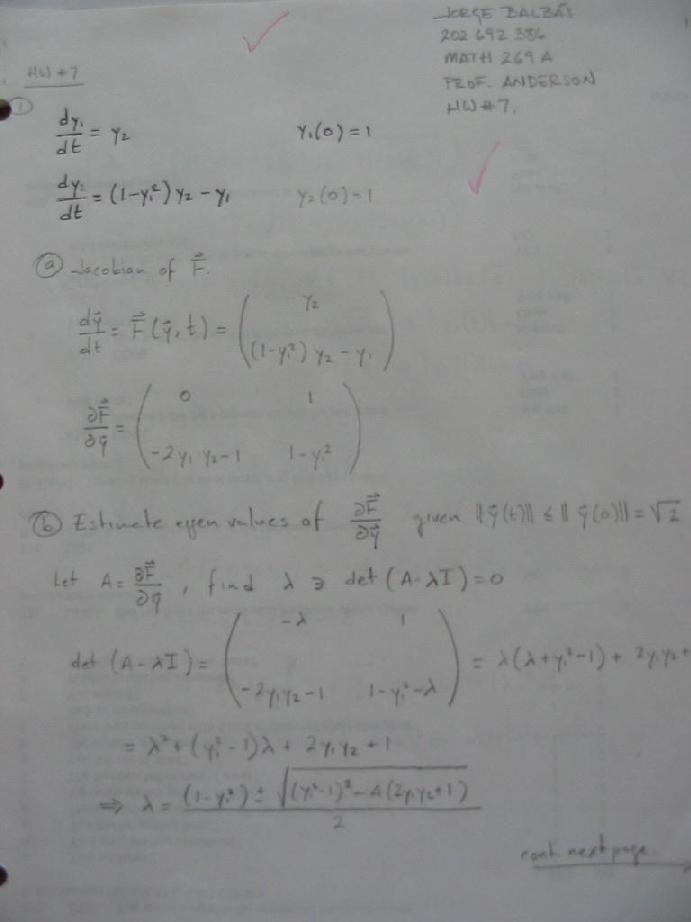 JORGE BALBÁS
202 692 386
MATH 269 A
PROF. ANDERSON
HW # 7.
HW #7
① dy₁/dt = y₂ y₁(0) = 1
dy₂/dt = (1-y₁²) y₂ - y₁ y₂(0) = 1
ⓐ Jacobian of F⃗.
dy⃗/dt = F⃗(y⃗, t) = ( y₂
(1-y₁²) y₂ - y₁ )
∂F⃗/∂y⃗ = ( 0 1
-2y₁ y₂-1 1-y₁² )
ⓑ Estimate eigen values of ∂F⃗/∂y⃗ given ||y⃗(t)|| ≤ ||y⃗(0)|| = √2
Let A = ∂F⃗/∂y⃗ , find λ ∋ det (A-λI) = 0
det (A-λI) = ( -λ 1
-2y₁y₂-1 1-y₁²-λ ) = λ(λ+y₁²-1) + 2y₁y₂+
= λ² + (y₁²-1)λ + 2y₁y₂ + 1
⇒ λ = (1-y₁²) ± √((y₁²-1)² - 4(2y₁y₂+1)) / 2
cont. next page.